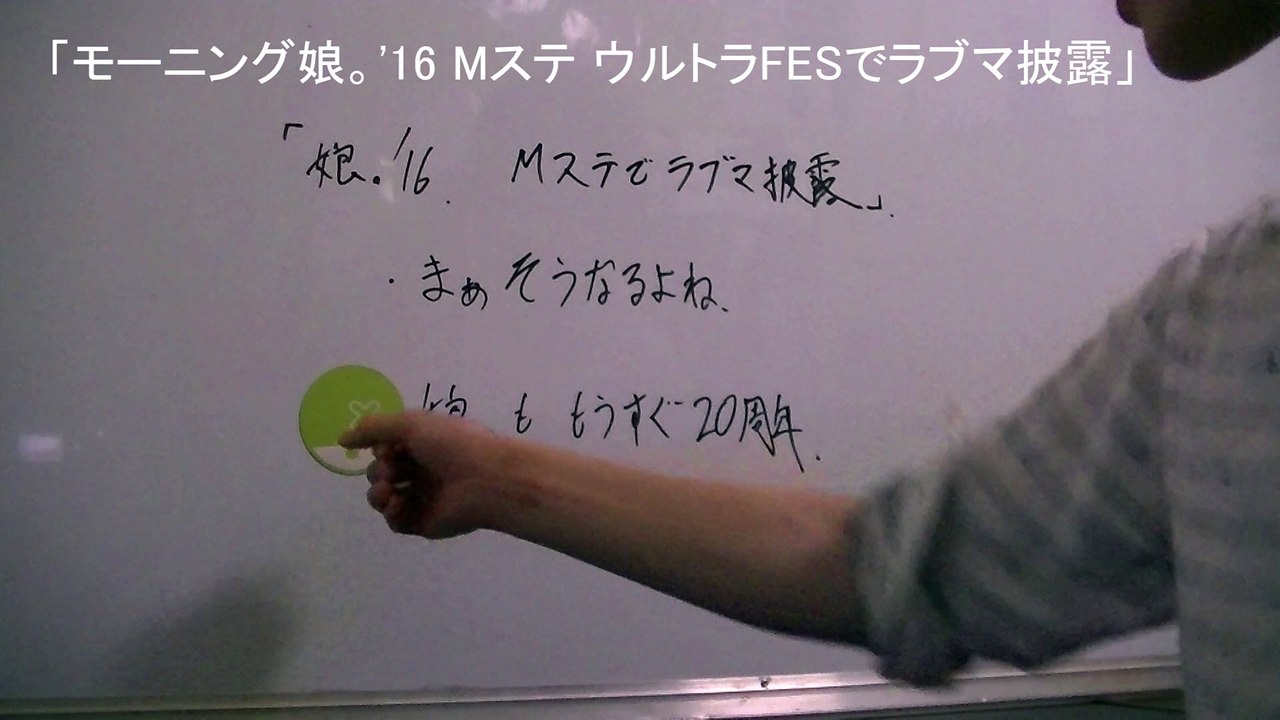 「モーニング娘。'16 Mステ ウルトラFESでラブマ披露」
「娘。'16. Mステでラブマ披露」.
・まぁそうなるよね、
娘 も もうすぐ20周年.